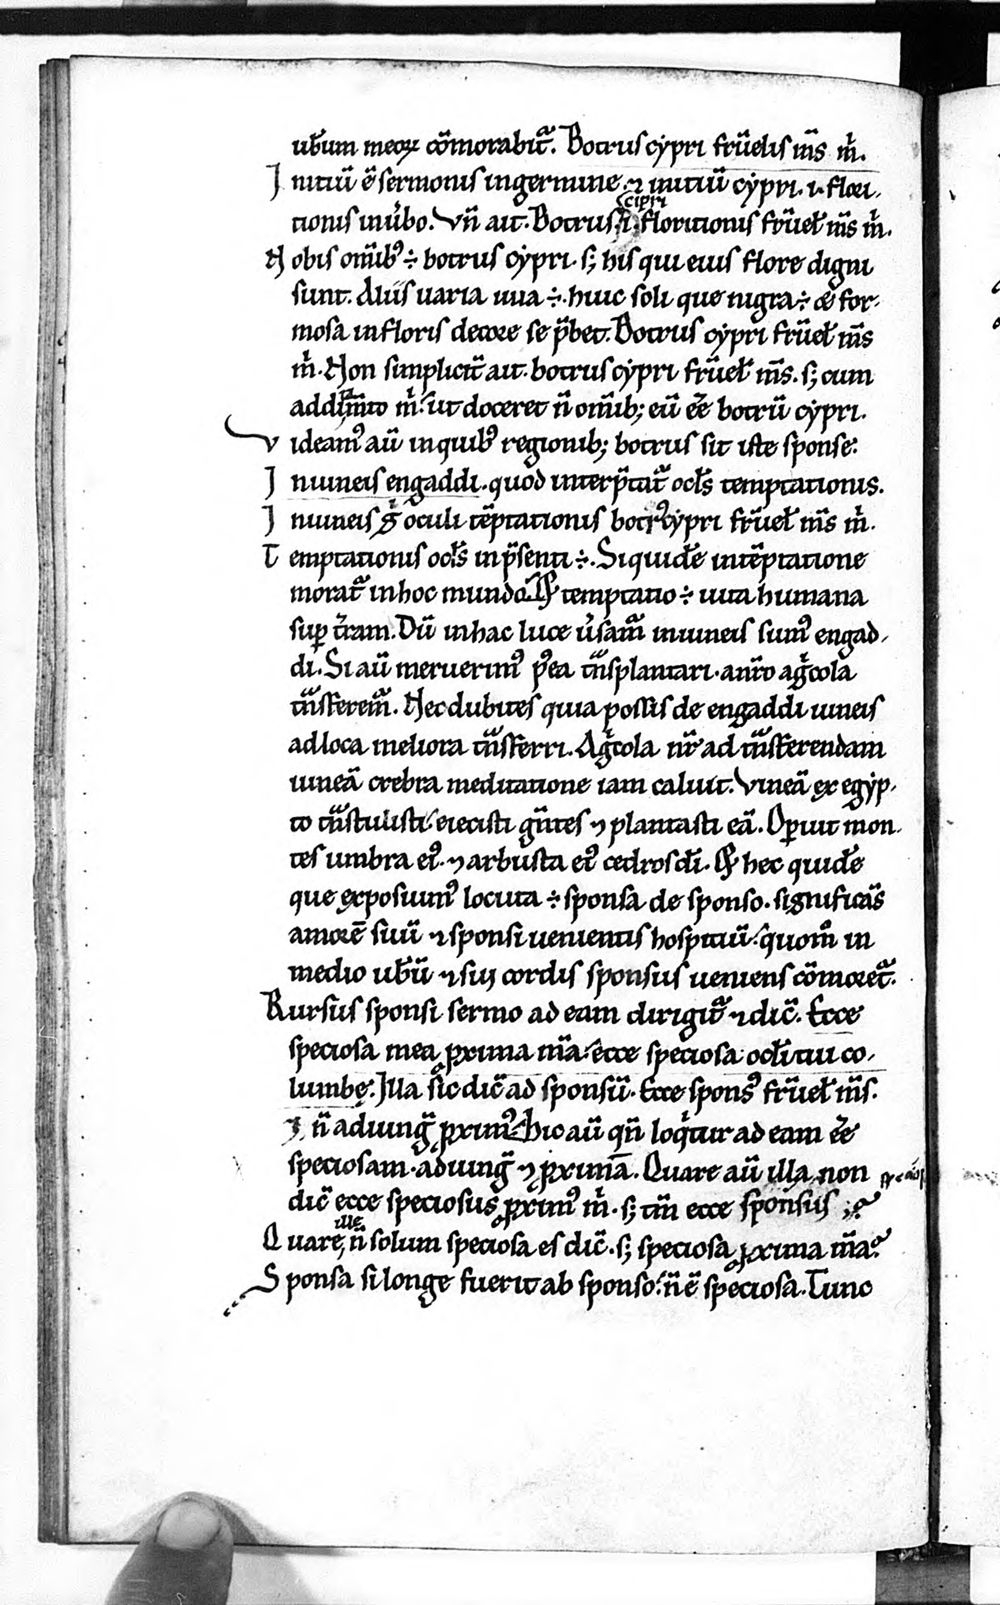 ub̃um meoꝝ cõmorabit᷑. Botrus cẏpri fr̃uelis m̃s m̊.
Initiũ ẽ sermonis in germine ⁊ initiũ cẏpri .i. flori-
tionis in u̾bo. Vñ ait. Botrus cipri .i. floritionis fr̃uel̃ m̃s m̊.
Nobis om̃ibꝰ ÷ botrus cẏpri. sꝫ his qui eius flore digni
sunt. Aliis uaria uua ÷. huic soli que nigra ÷ ⁊ for-
mosa in floris decore se p̃bet. Botrus cẏpri fr̃uel̃ m̃s
m̊. Non simplicit̃ ait. botrus cẏpri fr̃uel̃ m̃s. sꝫ cum
addim̃to m̊. ut doceret ñ om̃ibꝫ eũ eẽ botrũ cẏpri.
Videamꝰ aũ in quibꝰ regionibꝫ botrus sit iste sponse.
In uineis engaddi. quod interp̃tat᷑ ocl̃s temptationis.
In uineis g̊ oculi tẽptationis botrꝰ cẏpri fr̃uel̃ m̃s m̊.
Temptationis ocl̃s in p̃senti ÷. Siquidẽ in tẽptatione
morat᷑ in hoc mundo. Et temptatio ÷ uita humana
suꝑ t̾ram. Dũ in hac luce u̾sam᷑ in uineis sumꝰ engad-
di. Si aũ meruerimꝰ p̾ea t̃nsplantari. a nr̃o ag̊cola
t̃nsferem᷑. Nec dubites quia possis de engaddi uineis
ad loca meliora t̃nsferri. Ag̊cola nr̃ ad t̃nsferendam
uineã crebra meditatione iam caluit. Vineã ex egẏp-
to t̃nstulisti. eiecisti gñtes ⁊ plantasti eã. Oꝑuit mon-
tes umbra eiꝰ. ⁊ arbusta eiꝰ cedros dĩ. Et hec quidẽ
que exposuimꝰ locuta ÷ sponsa de sponso. significãs
amorẽ suũ ⁊ sponsi uenientis hospitiũ. quom̊ in
medio ub̃ũ ⁊ sui cordis sponsus ueniens cõmoret᷑.
Rursus sponsi sermo ad eam dirigit᷑ ⁊ dic̃. Ecce
speciosa mea ꝓxima m̃a. ecce speciosa ocl̃i tui co-
lumbę. Illa sic dic̃ ad sponsũ. Ecce sponsꝰ fr̃uel̃ m̃s.
⁊ ñ adiung̃ ꝓximꝰ. Hic aũ qñ loq̊tur ad eam eẽ
speciosam. adiung̃ ⁊ ꝓximã. Quare aũ illa non
dic̃ ecce speciosus ꝓximꝰ m̊. sꝫ tm̃ ecce sponsus?
Quare ille ñ solum speciosa es dic̃. sꝫ speciosa ꝓxima m̃a?
Sponsa si longe fuerit ab sponso. ñ ẽ speciosa. Tunc